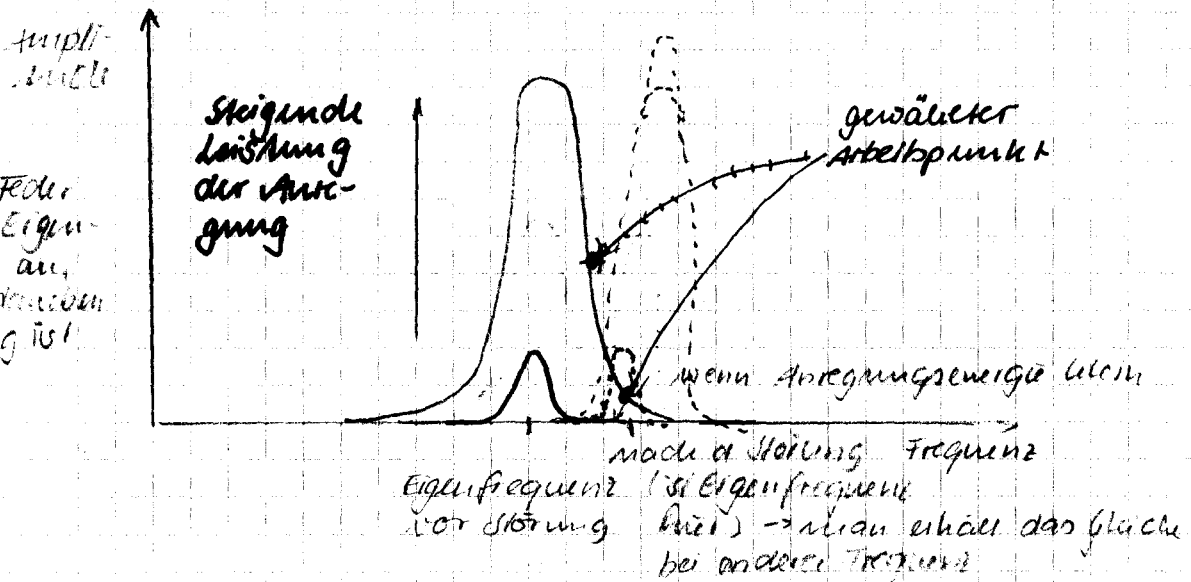 Ampli-
tude
Steigende
Leistung
der Anre-
gung
gewählter
Arbeitspunkt
Feder
Eigen-
an,
g ist
wenn Anregungsenergie klein
nach d Störung Frequenz
Eigenfrequenz ist Eigenfrequenz
vor Störung hier) → man erhält das Gleiche
bei anderer Frequenz